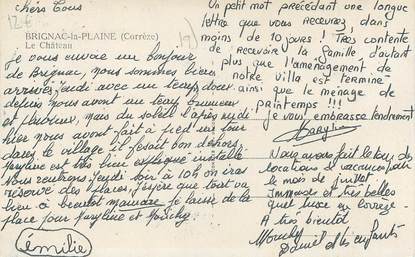 Chers Tous
12€
BRIGNAC-la-PLAINE (Corrèze)
Le Château
19)
Je vous envoie un bonjour
de Brignac, nous sommes bien
arrivés jeudi avec un temps doux.
depuis nous avons un temps brumeux
et pluvieux, mais du soleil l'après midi.
hier nous avons fait à pied un tour
dans le village il fesait bon dehors.
Maryline est très bien installée
Nous rentrons jeudi soir à 10h on ira
réservé des places. J'espère que tout va
bien à bientot mamare je laisse de la
place pour Maryline et Mouchy
émilie
Un petit mot précédant une longue
lettre que vous recevrez dans
moins de 10 jours ! Très contente
de recevoir la famille d'autant
plus que l'aménagement de
notre villa est terminé
ainsi que le ménage de
printemps !!!
Je vous embrasse tendrement
Maryline
Nous avons fait le tour des
locations de vacances pour
le mois de juillet
immenses et très belles
quel luxe en Corrèze.
A très bientot
Mouchy
Daniel et les enfants